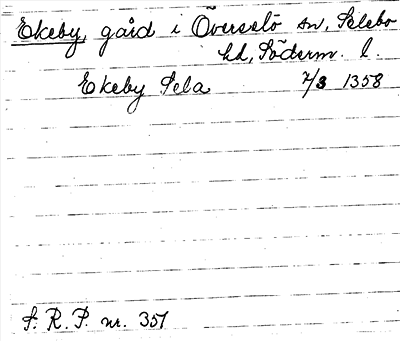 Ekeby, gård i Överselö sn, Selebo
hd, Söderm. l.
Ekeby Sela 7/3 1358
S. R. P. nr. 357